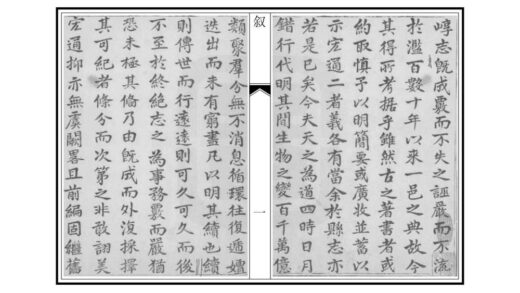 崞志既成覈而不失之誣嚴而不流
於濫百數十年以來一邑之典故今
其得所考据乎雖然古之著書者或
約取慎予以明簡要或廣收並蓄以
示宏通二者義各有當余於縣志亦
若是已矣今夫天之為道四時日月
錯行代明其間生物之變百千萬億
叙
一
類聚羣分無不消息循環往復遞嬗
迭出而未有窮盡凡以明其續也續
則傳世而行遠遠則可久可久而後
不至於終絶志之為事務覈而嚴猶
恐未極其乃由既成而外復採擇
其可紀者條分而次第之非敢詡美
宏通抑亦無虞闕畧且前編固繼舊